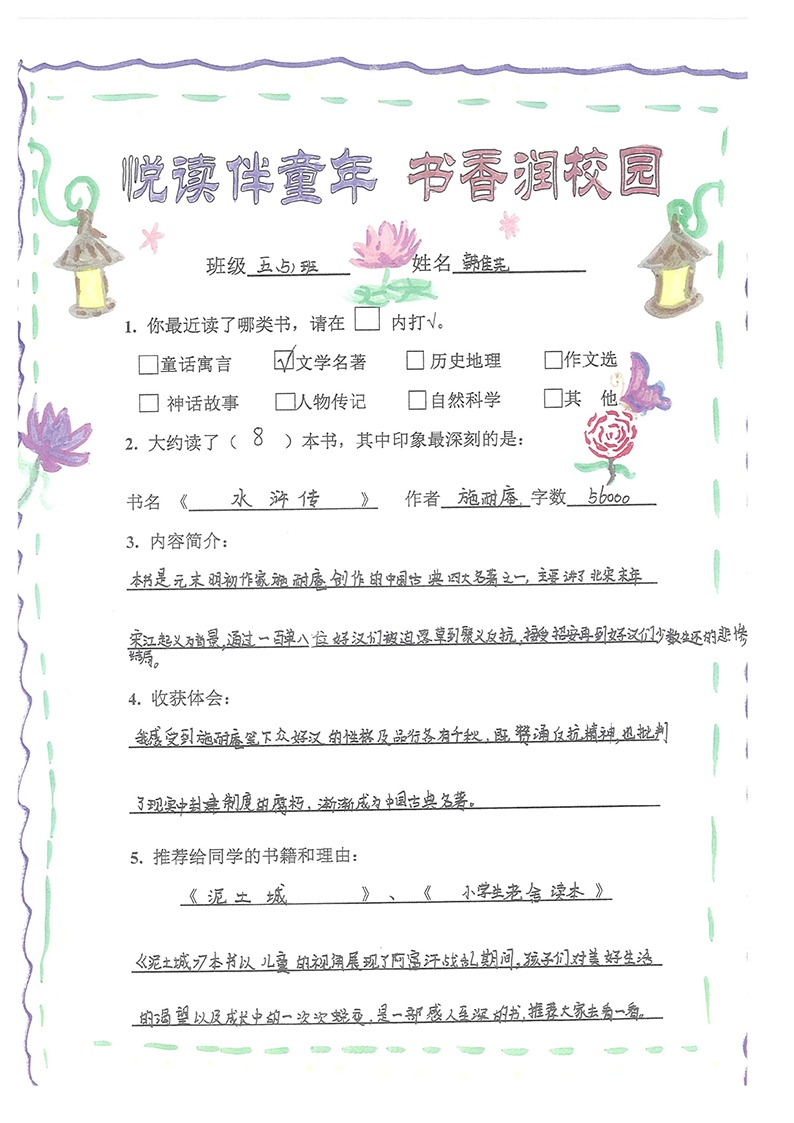 悦读伴童年 书香润校园
班级 五(5)班 姓名 韩佳芫
1. 你最近读了哪类书，请在 □ 内打√。
□童话寓言 ☑文学名著 □历史地理 □作文选
□神话故事 □人物传记 □自然科学 □其 他
2. 大约读了（ 8 ）本书，其中印象最深刻的是：
书名《 水浒传 》 作者 施耐庵 字数 56000
3. 内容简介：
本书是元末明初作家施耐庵创作的中国古典四大名著之一，主要讲了北宋末年
宋江起义为背景，通过一百单八位好汉们被迫落草到聚义反抗，接受招安再到好汉们少数生还的悲惨
结局。
4. 收获体会：
我感受到施耐庵笔下众好汉的性格及品行各有千秋，既赞诵反抗精神，也批判
了现实中封建制度的腐朽，渐渐成为中国古典名著。
5. 推荐给同学的书籍和理由：
《 泥土城 》、《 小学生老舍读本 》
《泥土城》本书以儿童的视角展现了阿富汗战乱期间，孩子们对美好生活
的渴望以及成长中的一次次蜕变，是一部感人至深的书，推荐大家去看一看。